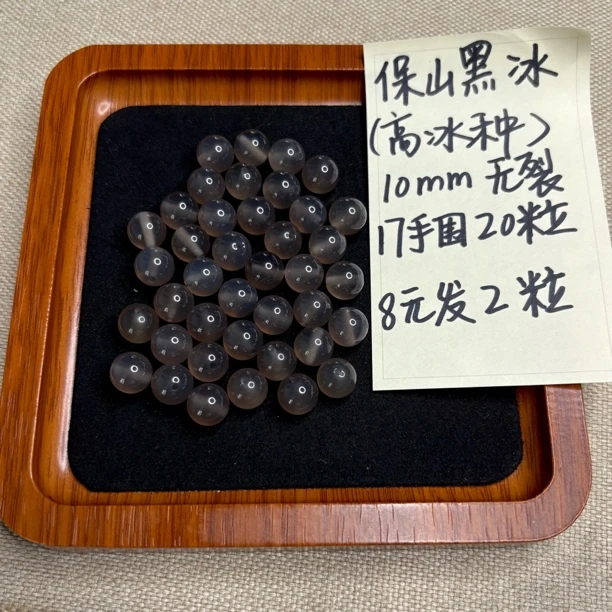 保山黑冰
(高冰种)
10mm 无裂
17手围20粒
8元发2粒